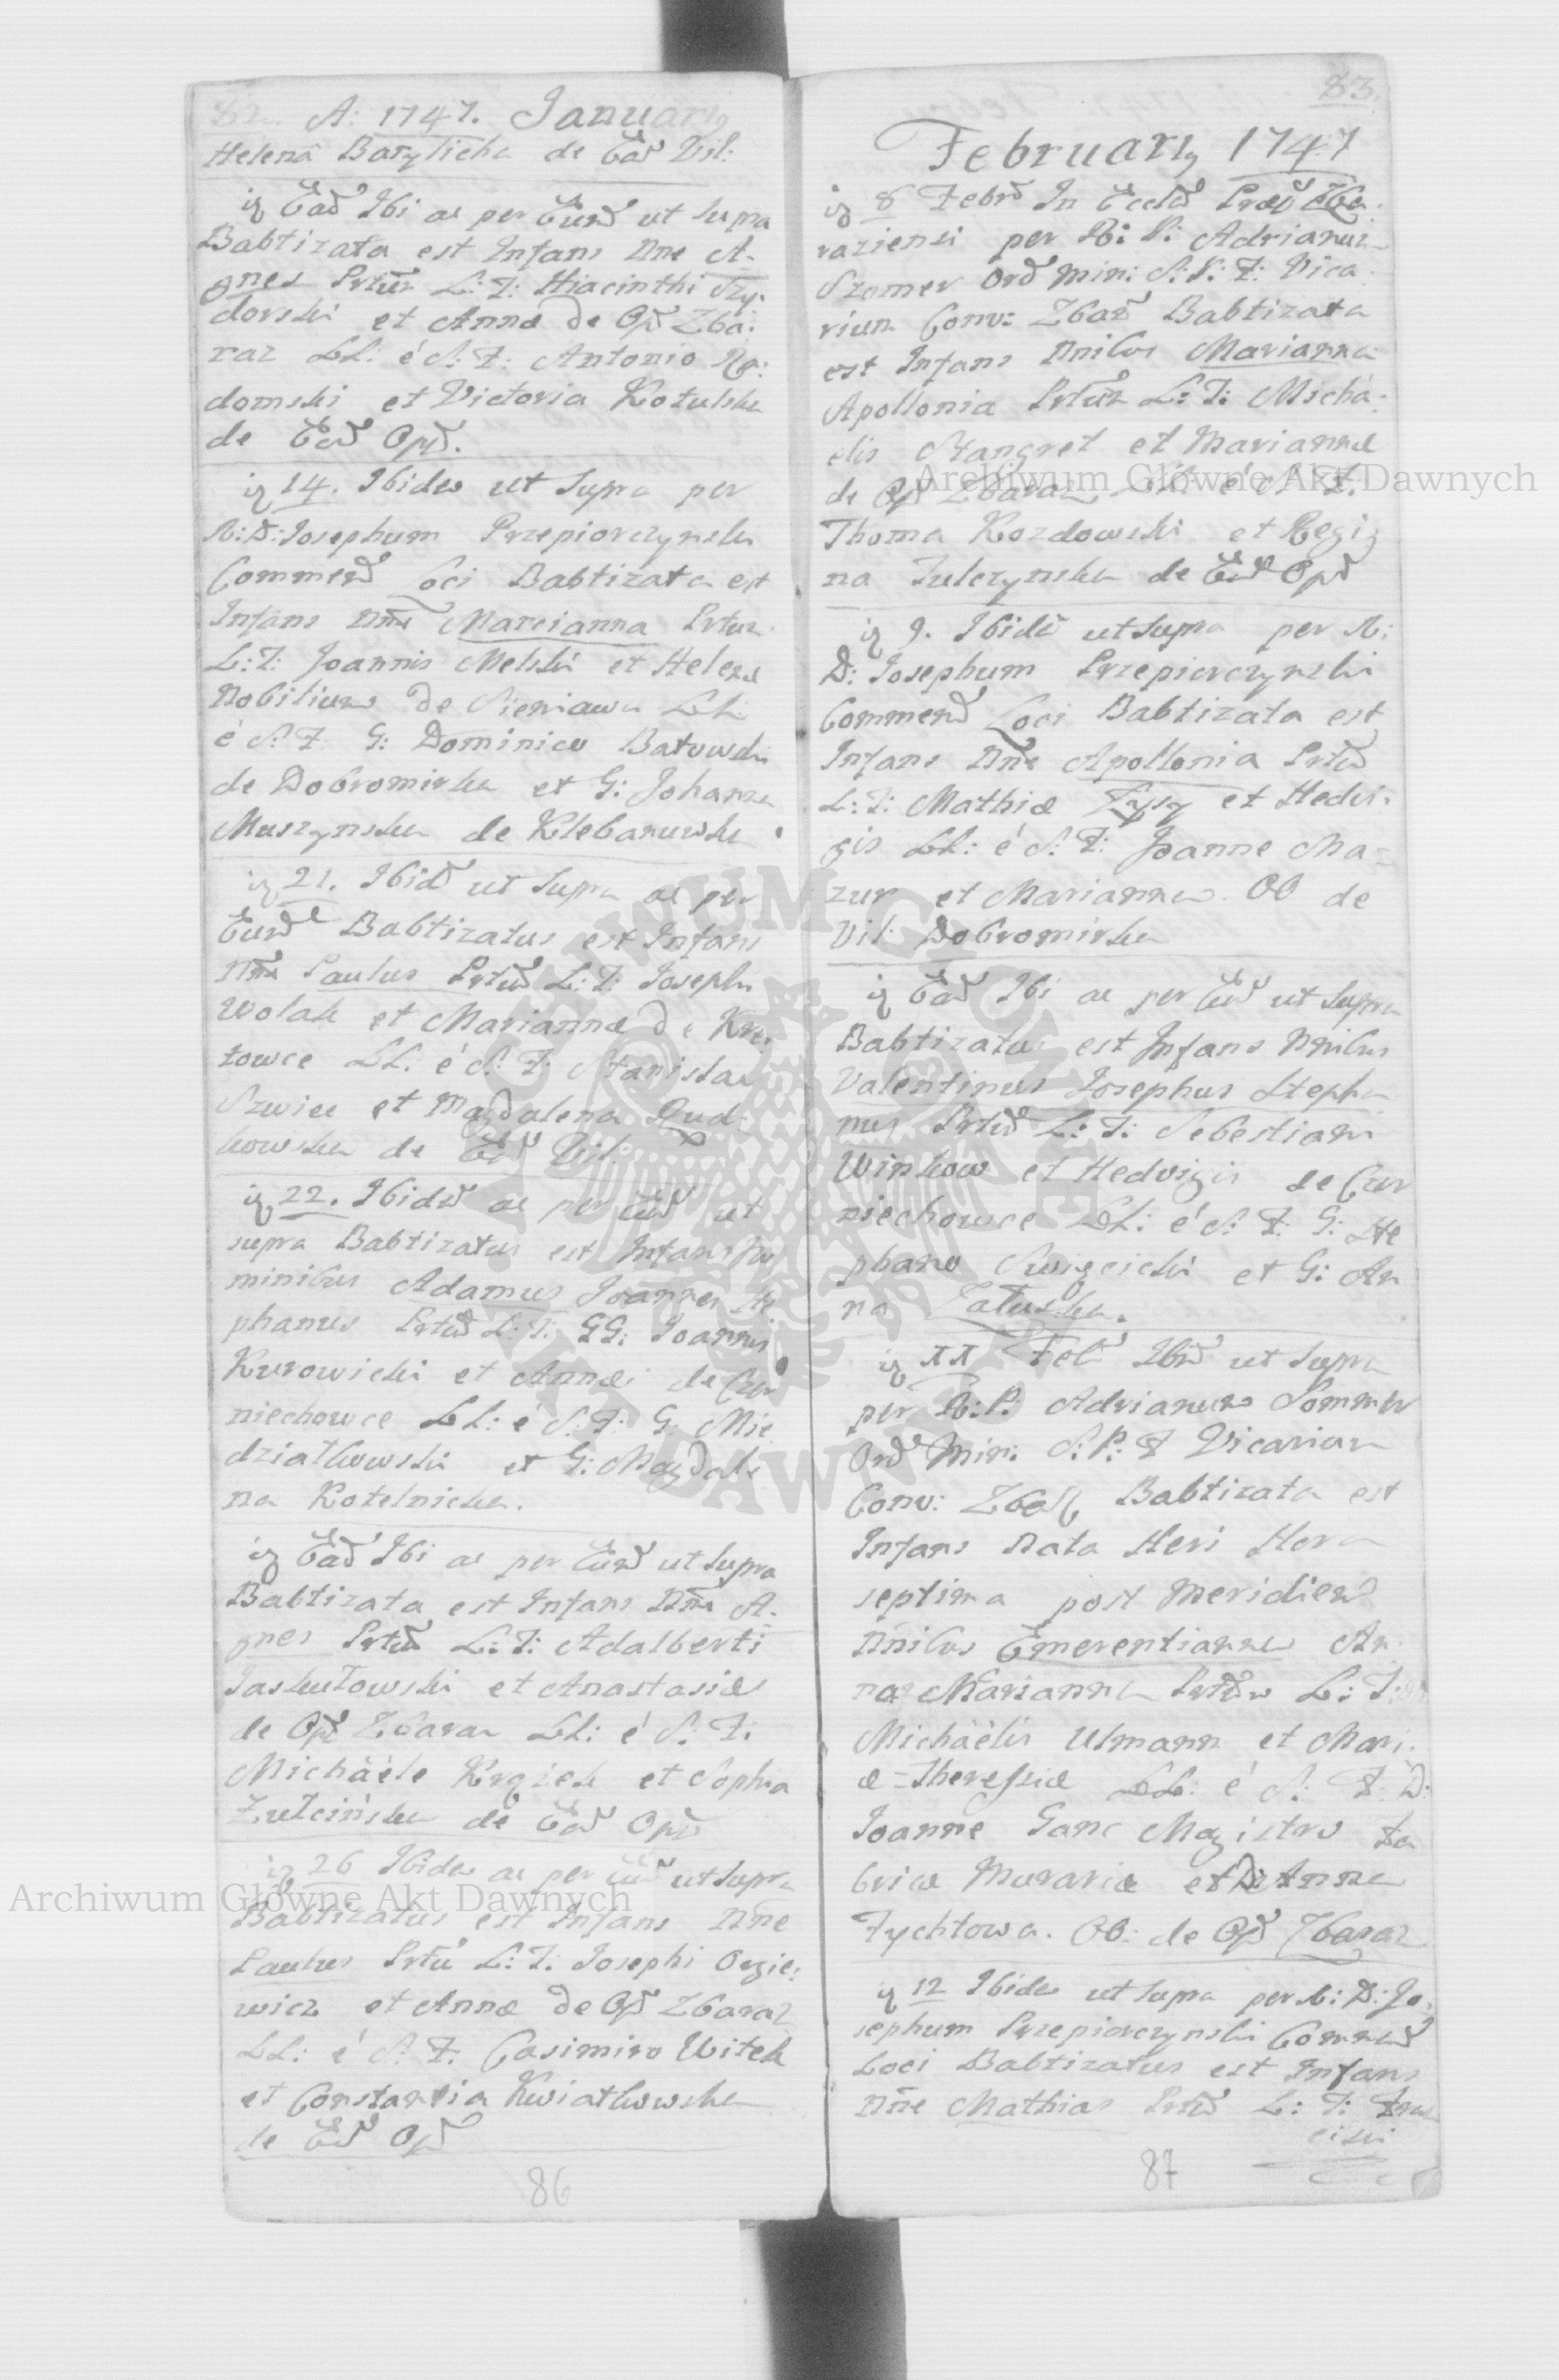 82. A: 1747. January
Helena Barylicha de Ead Vil:
ig Ead Ibi ac per Eund ut supra
Babtizata est Infans Nne A-
gnes Prtur L: T: Hiacinthi Szy-
dorski et Annæ de Opd Zba-
raz LL: é S: F: Antonio Ra-
domski et Victoria Kotulska
de Ead Opd.
ig 14. Ibidem ut supra per
R: D: Josephum Przepiorczynski
Commend Loci Babtizata est
Infans Nne Marcianna Prtur
L: T: Joannis Melski et Helenæ
Nobilium de Sieniawa LL:
é S: F: G: Dominico Batowski
de Dobromirka et G: Johanna
Muszynska de Klebanowka
ig 21. Ibid ut supra ac per
Eund Babtizatus est Infans
Nne Paulus Prtur L: T: Joseph
Wolak et Mariannæ de Kre-
towce LL: é S: F: Stanislao
Szwiec et Magdalena Dud-
kowska de Ead Vil.
ig 22. Ibidem ac per Eund ut
supra Babtizatus est Infans No
minibus Adamus Joannes Ste
phanus Prtur L: T: GG: Joannis
Kurowicki et Annæ de Czer
niechowce LL: é S: F: G: Mie
dziatkowski et G: Magdale
na Kotelnicka.
ig Ead Ibi ac per Eund ut supra
Babtizata est Infans Nne A-
gnes Prtur L: T: Adalberti
Jaskutowski et Anastasiæ
de Opd Zbaraz LL: é S: F:
Michäéle Krqzek et Sophia
Zulcińska de Ead Opd
ig 26 Ibidem ac per Eund ut supra
Babtizatus est Infans Nne
Paulus Prtur L: T: Josephi Orgie-
wicz et Annæ de Opd Zbaraz
LL: é S: F: Casimiro Witek
et Constantia Kwiatkowska
de Ead Opd
86
83.
February 1747
ig 8 Febr In Eccla Præp Zba-
raziensi per R: P: Adrianum
Szomer Ord Min: S: P: F: Vica-
rium Conv: Zbar Babtizata
est Infans Nnibus Marianna
Apollonia Prtur L: T: Micha-
elis Stangret et Mariannæ
de Opd Zbaraz LL: é S: F:
Thoma Kozdowski et Regi
na Fulczynska de Ead Opd
ig 9. Ibid ut supra per R:
D: Josephum Przepiorczynski
Commend Loci Babtizata est
Infans Nne Apollonia Prtur
L: T: Mathiæ Łysy et Hedvi-
gis LL: é S: F: Joanne Ma-
zur et Marianna. OO de
Vil: Dobromirka
ig Ead Ibi ac per Eund ut supra
Babtizatus est Infans Nnibus
Valentinus Josephus Stepha
nus Prtur L: T: Sebestiani
Winkow et Hedvigis de Czer
niechowce LL: é S: F: G: Ste
phano Swięcicki et G: An
na Załuska.
ig XX Feb Ibid ut supra
per R: P: Adrianum Sommer
Ord Min: S: P: F Vicarium
Conv: Zbar Babtizata est
Infans Nata Heri Hora
septima post Meridiem
Nnibus Emerentianna An
na Marianna Prtur L: T:
Michäélis Ulmann et Mari-
æ=Theresiæ LL: é S: F: D:
Joanne Ganc Magistro Fa
bricæ Murariæ et D: Anna
Fychtowa. OO: de Opd Zbaraz
ig 12 Ibidem ut supra per R: D: Jo-
sephum Przepiorczynski Commend
Loci Babtizatus est Infans
Nne Mathias Prtur L: T: Fran
ciski
87
Archiwum Główne Akt Dawnych
Archiwum Główne Akt Dawnych
ARCHIWUM GŁÓWNE AKT DAWNYCH